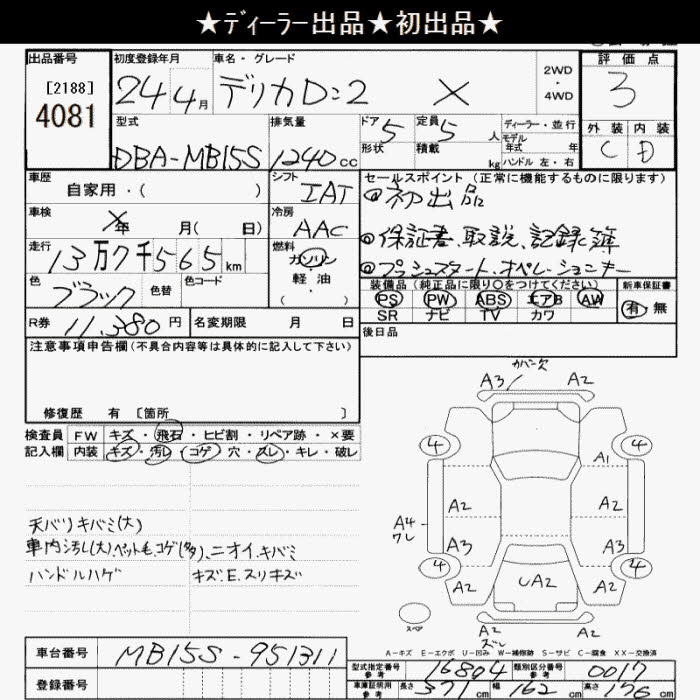 ★ディーラー出品★初出品★
出品番号
[2188]
4081
初度登録年月
24年4月
車名・グレード
デリカD:2 X
2WD
・
4WD
評価点
3
外装 内装
C D
型式
DBA-MB15S
排気量
1240cc
ドア 5
形状
定員 5人
積載 kg
ディーラー・並行
モデル
年式 年
ハンドル 左・右
車歴
自家用・( )
シフト
IAT
セールスポイント (正常に機能するものに限ります)
◎初出品
◎保証書、取説、記録簿
◎プッシュスタート、オペレーションキー
車検
×年 月(日)
冷房
AAC
走行
13万7千565km
燃料
ガソリン
軽油
( )
色
ブラック
色替
色コード
装備品 (純正品に限り○をつけてください)
PS PW ABS エアB AW
SR ナビ TV カワ
新車保証書
有・無
R券 11,380円
名変期限 月 日
後日品
注意事項申告欄(不具合内容等は具体的に記入して下さい)
修復歴 有 [箇所 ]
検査員 FW キズ・飛石・ヒビ割・リペア跡・×要
記入欄 内装 キズ・汚レ・コゲ・穴・スレ・キレ・破レ
天バリキバミ(大)
車内汚レ(大)、ペット毛、コゲ(多)、ニオイ、キバミ
ハンドルハゲ キズ.E.スリキズ
カバー欠
A3 A2
4 4
A1
A2 A2
A4
ワレ
A3 A2
4 4
A2 UA2 A2
スペア
A2
ズレ
A-キズ E-エクボ U-凹み W-補修跡 S-サビ C-腐食 XX-交換済
車台番号 MB15S-951311
登録番号
型式指定番号
参考
16804
類別区分番号
参考
0017
車庫証明用
参考
長さ 371cm 幅 162cm 高さ 176cm